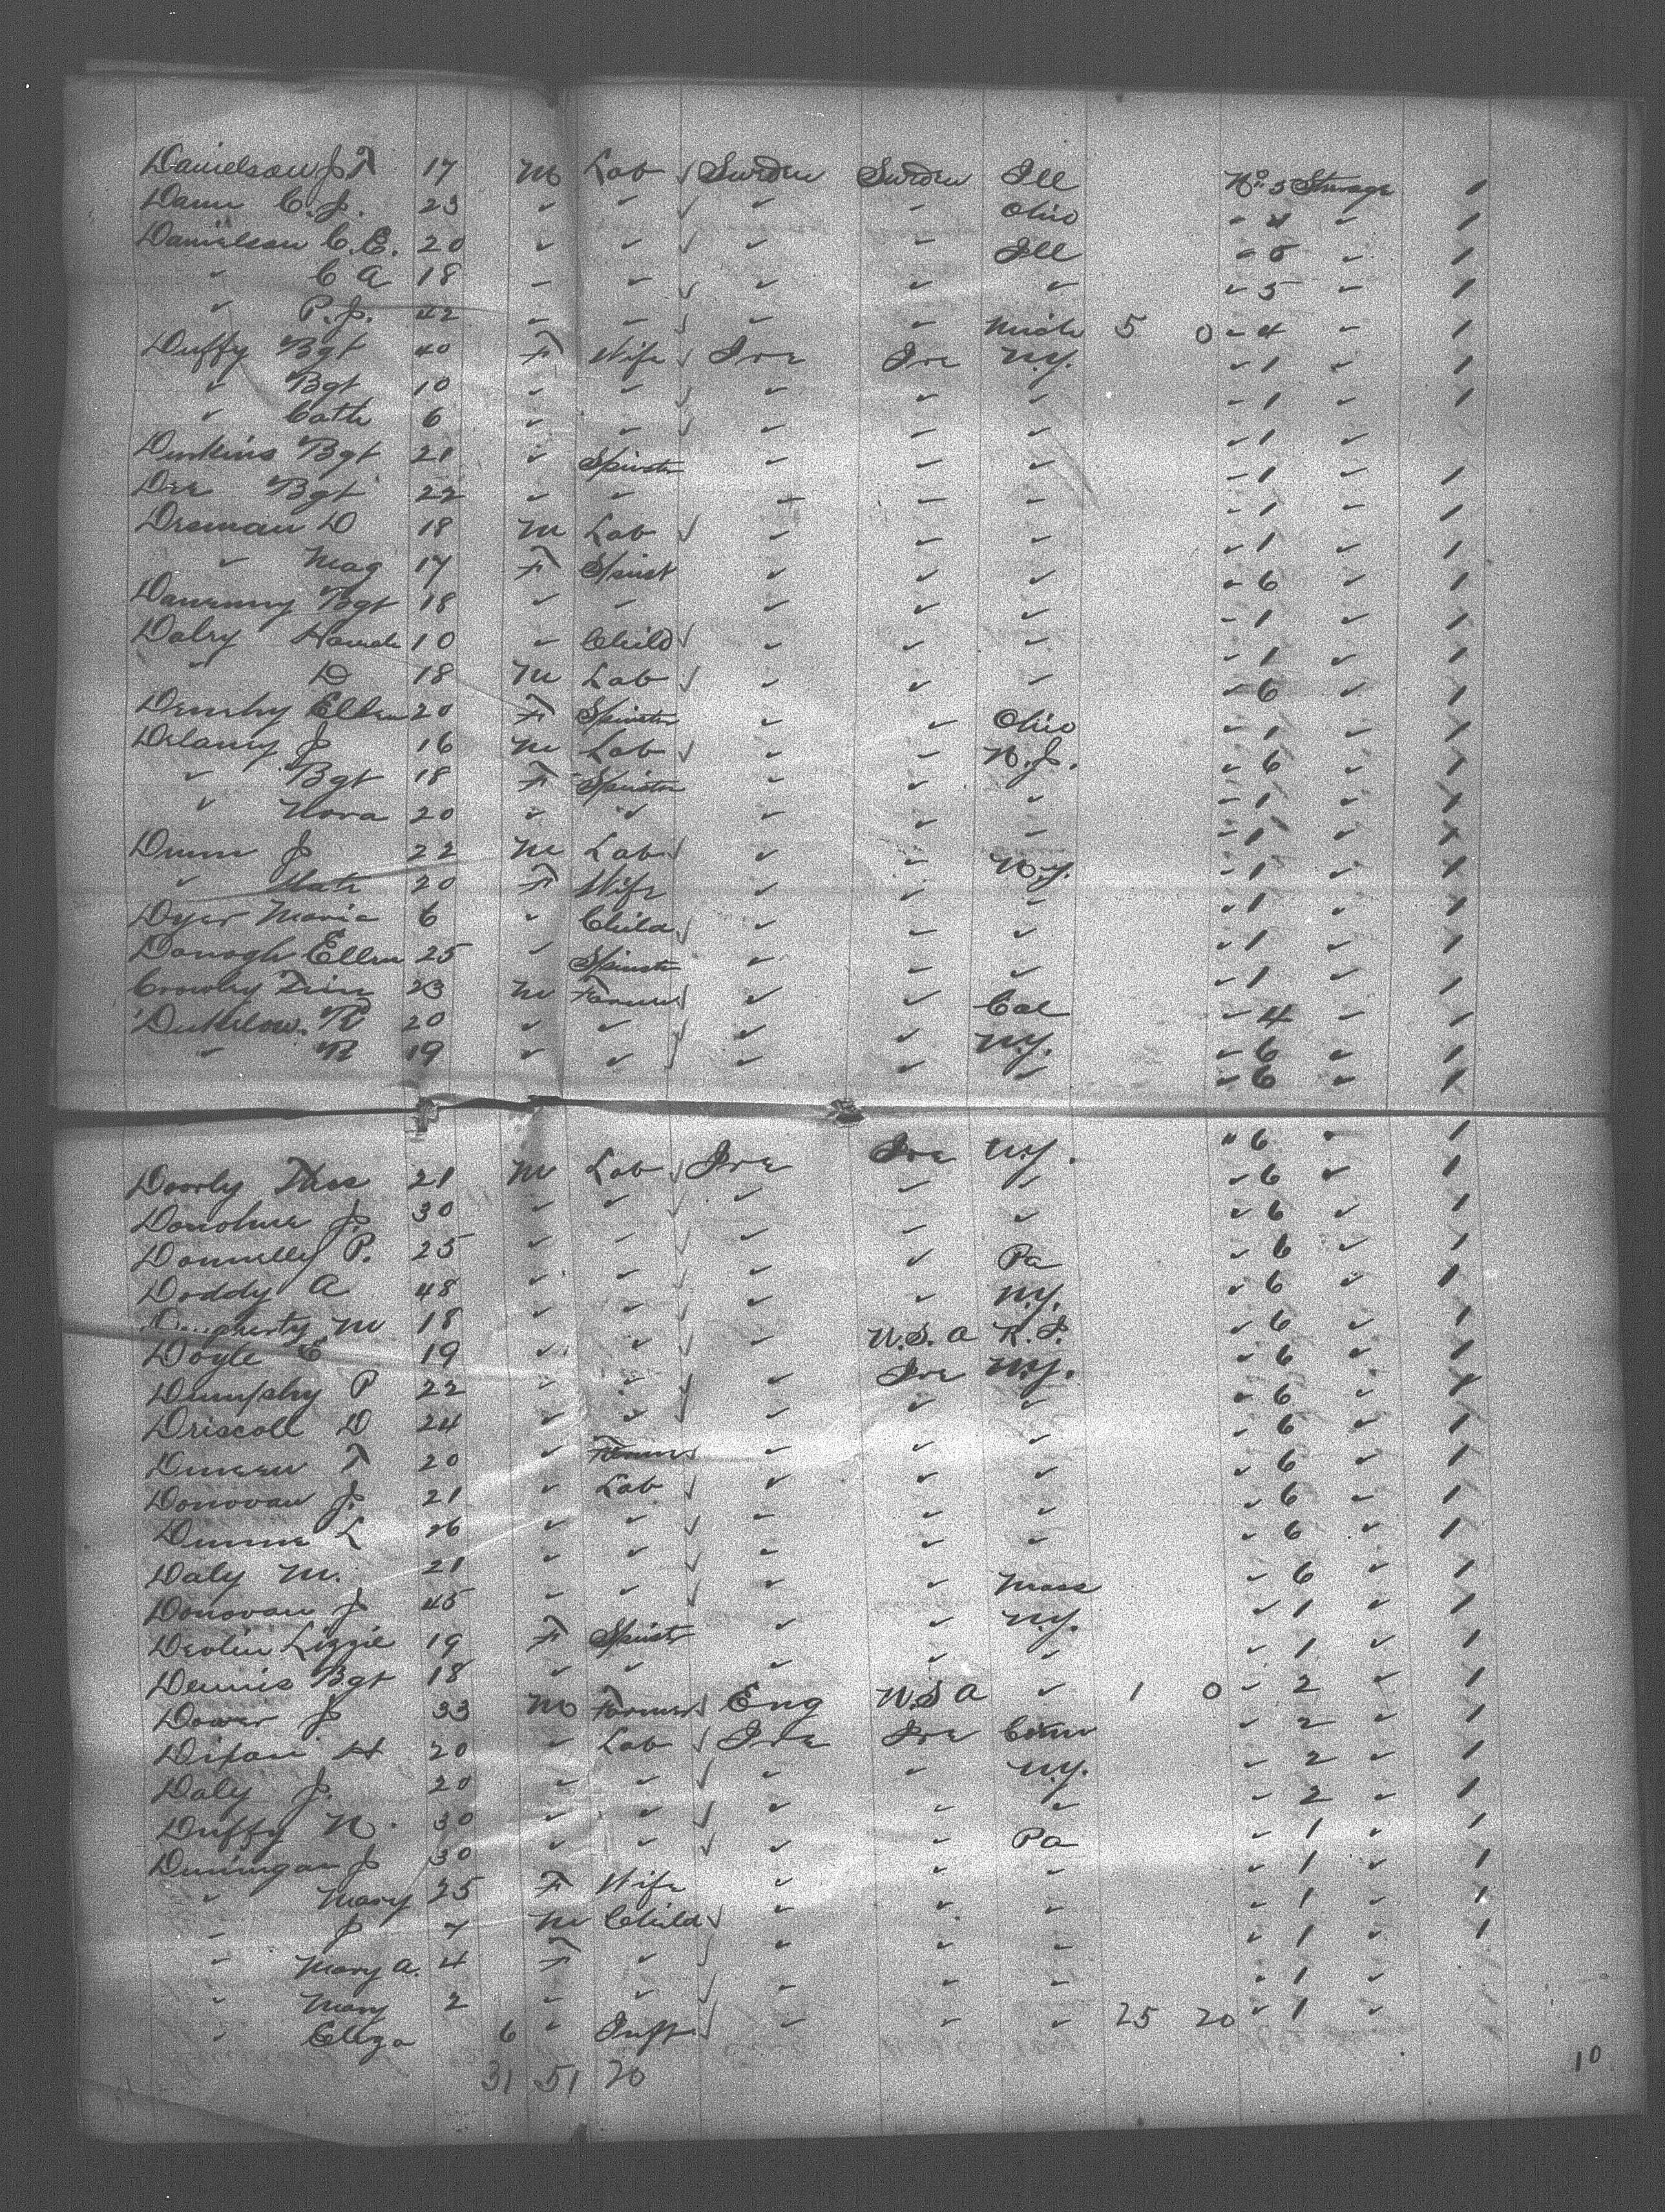 Danielson J T 17 M Lab ✓ Sweden Sweden Ill No 5 Steerage 1
Dann C. J. 23 " " ✓ " " Ohio " 4 " 1
Danielson C. E. 20 " " ✓ " " Ill " 5 " 1
" C A 18 " " ✓ " " " " 5 " 1
" P. J. 42 " " ✓ " " Mich 5 0 " 4 " 1
Duffy Bgt 40 F Wife ✓ Ire Ire N.Y. " 1 " 1
" Bgt 10 " " ✓ " " " " 1 " 1
" Cath 6 " " ✓ " " " " 1 "
Bgt 21 " Spinster " " " " 1 " 1
Dee Bgt 22 " " " " " " 1 " 1
D 18 M Lab ✓ " " " " 1 " 1
" Mag 17 F Spinst " " " " 6 " 1
Bgt 18 " " " " " " 1 "
Dalry 10 " Child ✓ " " " " 1 " 1
" D 18 M Lab ✓ " " " " 6 " 1
Ellen 20 F Spinster " " Ohio " 1 " 1
Delaney J 16 M Lab ✓ " " N. J. " 6 " 1
" Bgt 18 F Spinster " " " " 1 " 1
" Nora 20 " " " " " " 1 " 1
Dunn J 22 M Lab ✓ " " N.Y. " 1 " 1
" Kate 20 F Wife " " " " 1 " 1
Dyer Maria 6 " Child ✓ " " " " 1 " 1
Donogh Ellen 25 " Spinster " " " " 1 " 1
Crowley Tim 23 M Farmer ✓ " " Cal " 4 " 1
R 20 " " ✓ " " N.Y. " 6 " 1
" R 19 " " ✓ " " " " 6 " 1
Doorly Thos 21 M Lab ✓ Ire Ire N.Y. " 6 " 1
Donohue J. 30 " " ✓ " " " " 6 " 1
Donnelly P. 25 " " ✓ " " " " 6 " 1
Doddy A 48 " " ✓ " " Pa " 6 " 1
M 18 " " ✓ " " N.Y. " 6 " 1
Doyle E 19 " " " U.S.A R.I. " 6 " 1
Dumphy P 22 " " ✓ " Ire N.Y. " 6 " 1
Driscoll D 24 " " ✓ " " " " 6 " 1
T 20 " Farmer " " " " 6 " 1
Donovan J. 21 " Lab " " " " 6 " 1
Dunne L 26 " " ✓ " " " " 6 " 1
Daly M. 21 " " ✓ " " " " 6 " 1
Donovan J 45 " " ✓ " " Mass " 6 " 1
Devlin Lizzie 19 F Spinstr " " N.Y. " 1 " 1
Dennis Bgt 18 " " " " " " 1 " 1
Dower J 33 M Farmer ✓ Eng U.S A " 1 0 " 2 " 1
H 20 " Lab ✓ Ire Ire Conn " 2 " 1
Daly J. 20 " " ✓ " " N.Y. " 2 " 1
Duffy N. 30 " " ✓ " " " " 2 " 1
Dunnigan J 30 " " ✓ " " Pa " 1 " 1
" Mary 25 F Wife " " " " 1 " 1
" J 7 M Child ✓ " " " " 1 " 1
" Mary A. 4 F " ✓ " " " " 1 " 1
" Mary 2 " " ✓ " " " " 1 "
" Eliza 6 " Inft ✓ " " " 25 20 " 1 "
31 51 20
10